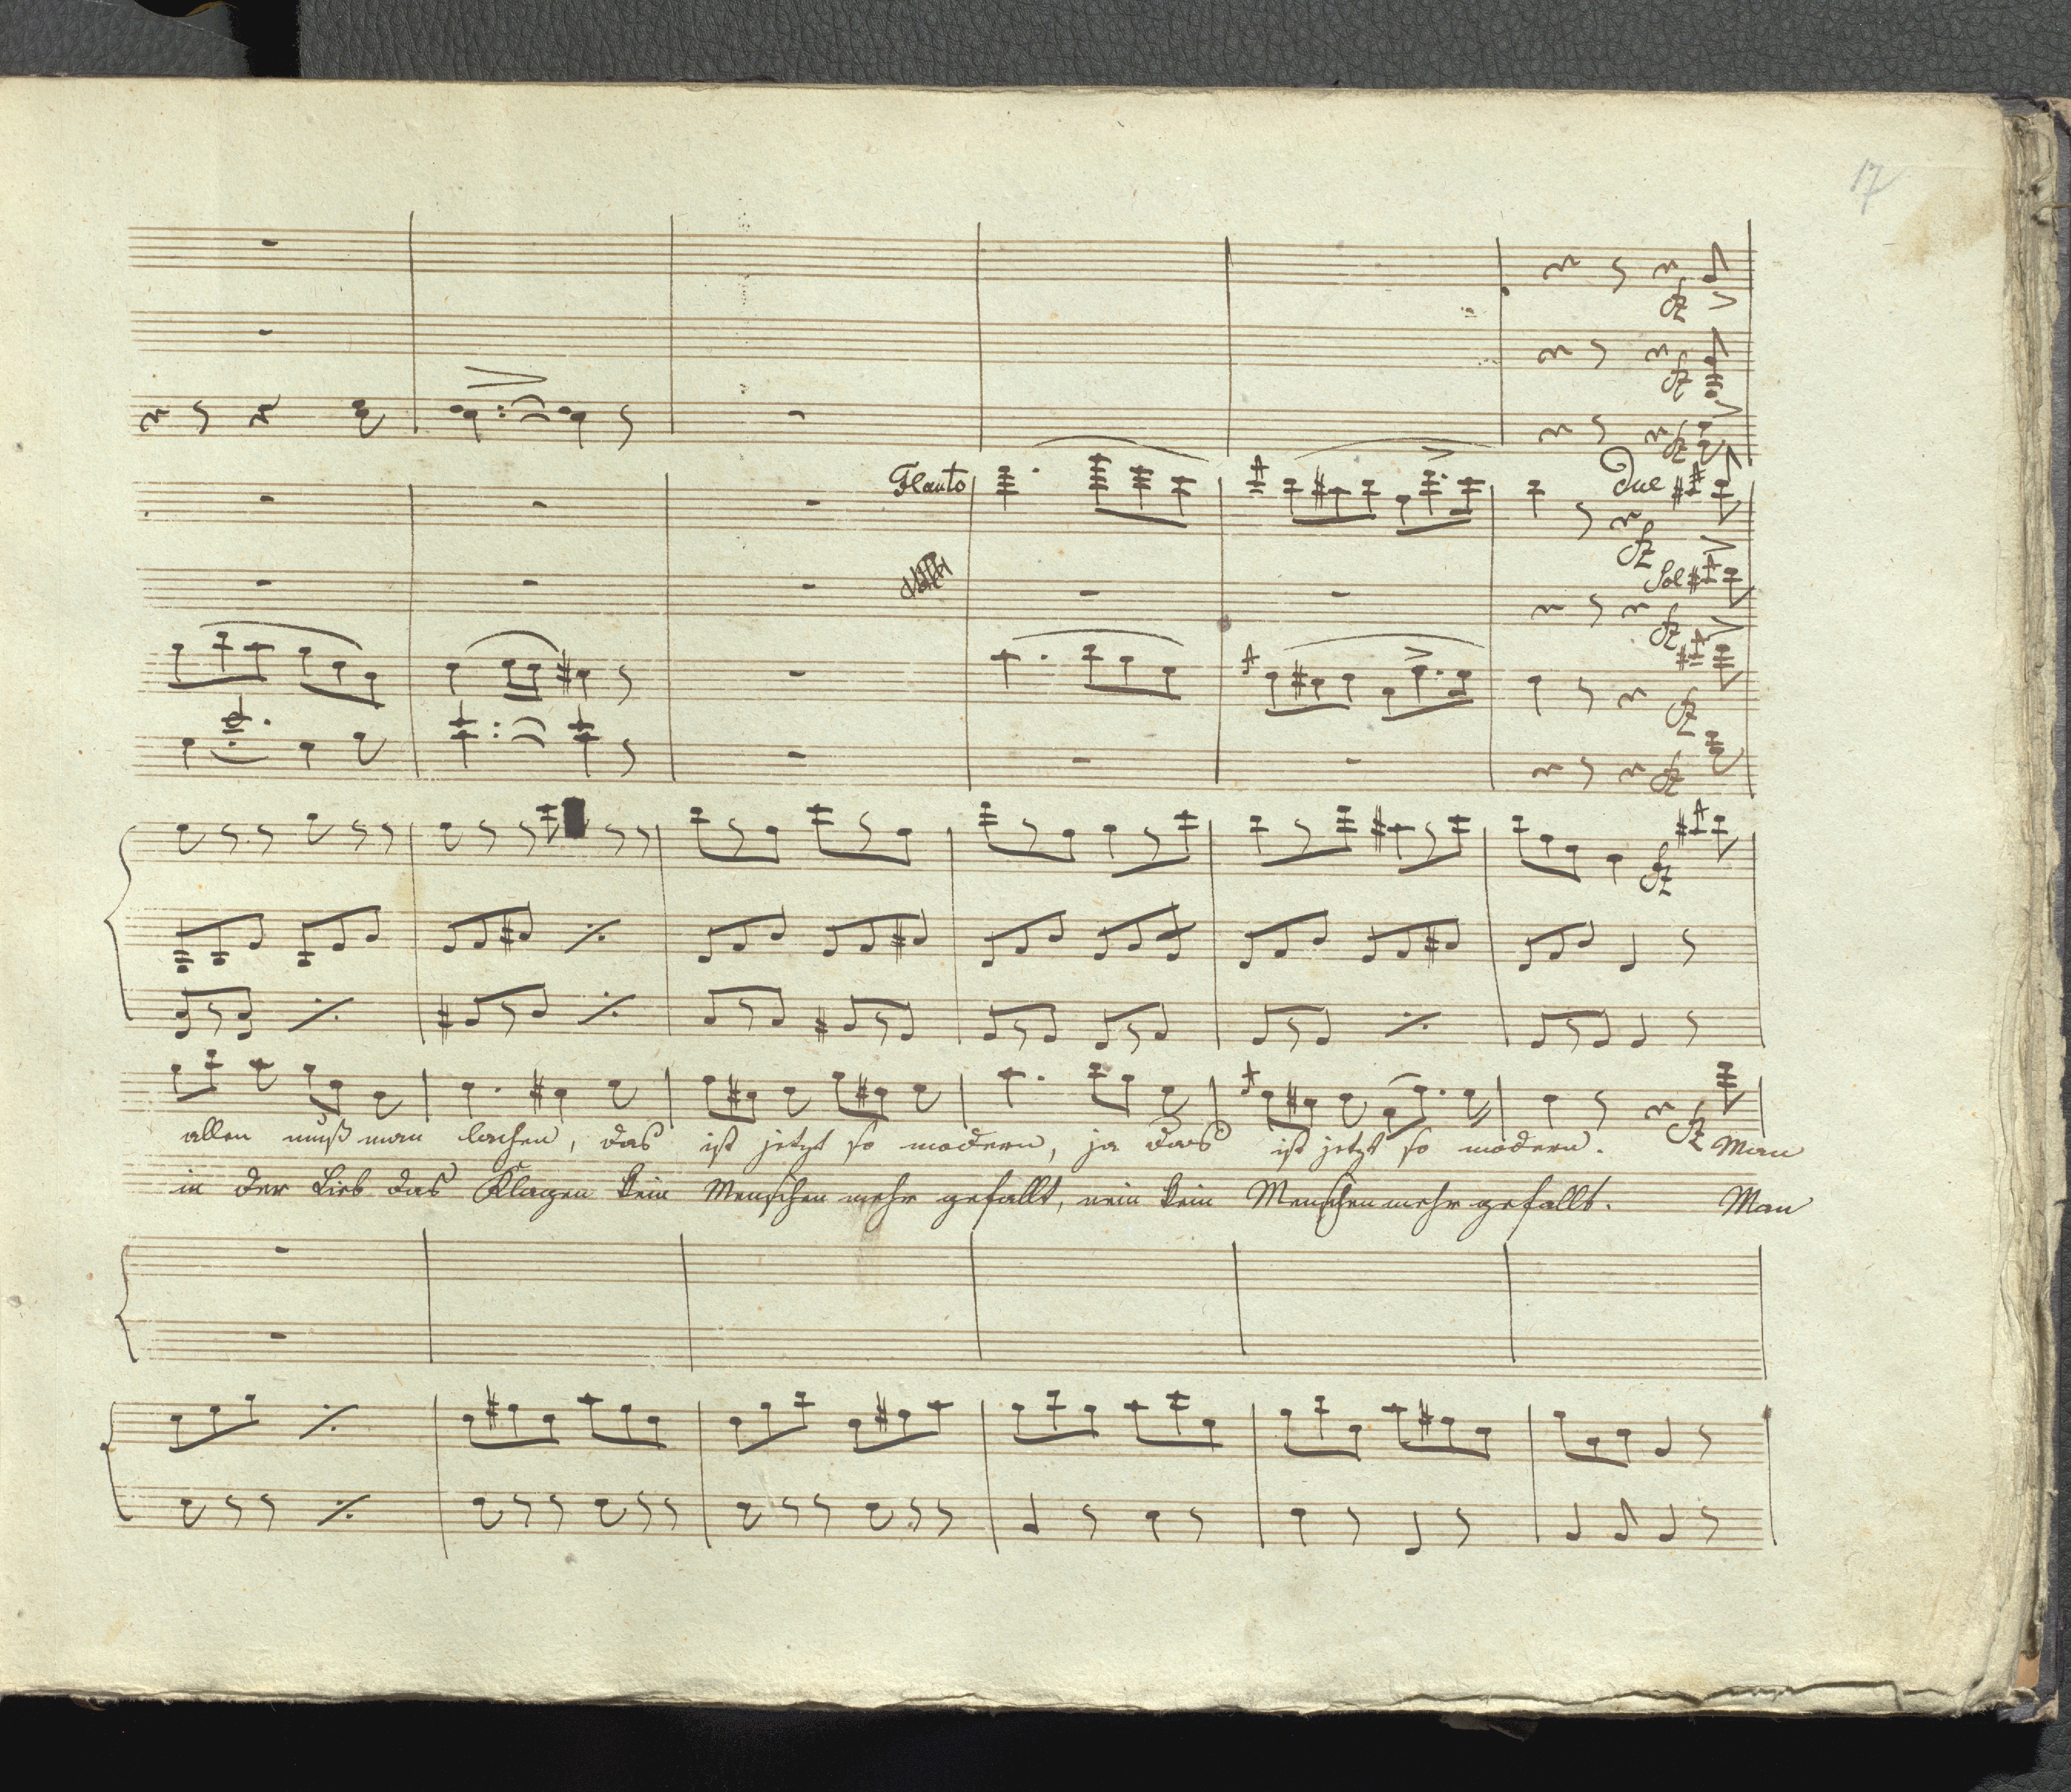 17
fz
fz
fz
Flauto
Due
fz
Sol
fz
fz
fz
fz
allen muß man lachen, das ist jetzt so modern, ja das ist jetzt so modern. fz Man
in der Lieb das Klagen kein Menschen mehr gefallt, nein kein Menschen mehr gefallt. Man